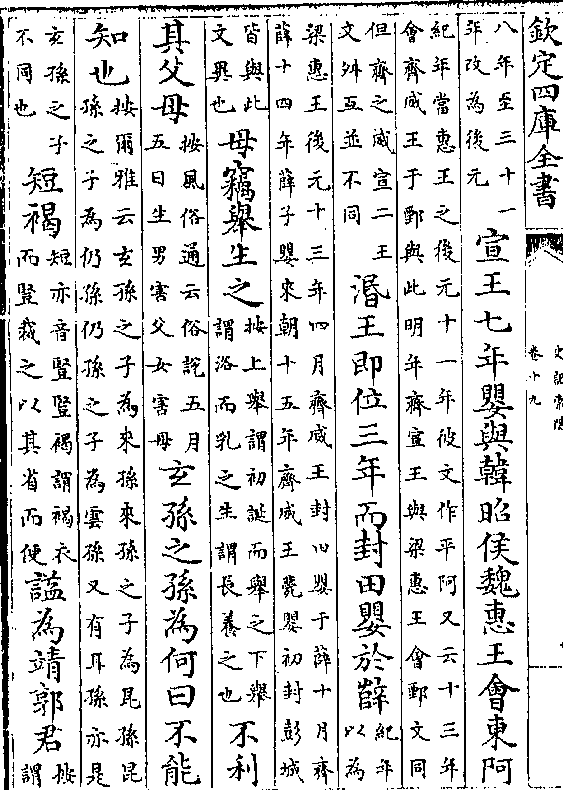 欽定四庫全書
史記索隱
卷十九
八年至三十一
年改為後元
宣王七年嬰與韓昭侯魏惠王會東阿
紀年當惠王之後元十一年彼文作平阿又云十三年
會齊威王于鄄與此明年齊宣王與梁惠王會鄄文同
但齊之威宣二王
文舛互並不同
湣王即位三年而封田嬰於薛
紀年
以為
梁惠王後元十三年四月齊威王封田嬰于薛十月齊
薛十四年薛子嬰來朝十五年齊威王薨嬰初封彭城
皆與此
文異也
母竊舉生之
按上舉謂初誕而舉之下舉
謂浴而乳之生謂長養之也
不利
其父母
按風俗通云俗說五月
五日生男害父女害母
玄孫之孫為何曰不能
知也
按爾雅云玄孫之子為來孫來孫之子為昆孫昆
孫之子為仍孫仍孫之子為雲孫又有耳孫亦是
玄孫之子
不同也
短褐
短亦音豎豎褐謂褐衣
而豎裁之以其省而便
諡為靖郭君
按
謂